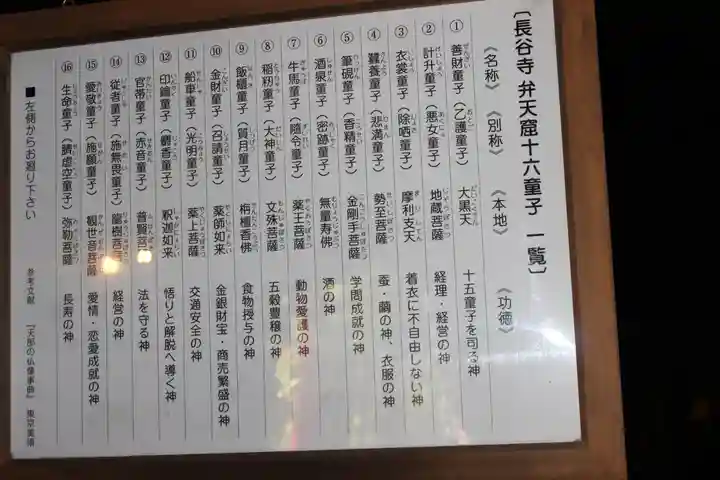 〔長谷寺 弁天窟十六童子 一覧〕
《名称》 《別称》 《本地》 《功徳》
① 善財童子（乙護童子） 大黒天 十五童子を司る神
② 計升童子（悪女童子） 地蔵菩薩 経理・経営の神
③ 衣裳童子（除哂童子） 摩利支天 着衣に不自由しない神
④ 蠶養童子（悲満童子） 勢至菩薩 蚕・繭の神、衣服の神
⑤ 筆硯童子（香精童子） 金剛手菩薩 学問成就の神
⑥ 酒泉童子（密跡童子） 無量寿佛 酒の神
⑦ 牛馬童子（随令童子） 薬王菩薩 動物愛護の神
⑧ 稲籾童子（大神童子） 文殊菩薩 五穀豊穣の神
⑨ 飯櫃童子（質月童子） 栴檀香佛 食物授与の神
⑩ 金財童子（召請童子） 薬師如来 金銀財宝・商売繁盛の神
⑪ 船車童子（光明童子） 薬上菩薩 交通安全の神
⑫ 印鑰童子（麝香童子） 釈迦如来 悟りと解脱へ導く神
⑬ 官帯童子（赤音童子） 普賢菩薩 法を守る神
⑭ 従者童子（施無畏童子） 龍樹菩薩 経営の神
⑮ 愛敬童子（施願童子） 観世音菩薩 愛情・恋愛成就の神
⑯ 生命童子（請虚空童子） 弥勒菩薩 長寿の神
■左側からお廻り下さい
参考文献 『天部の仏像事典』 東京美術